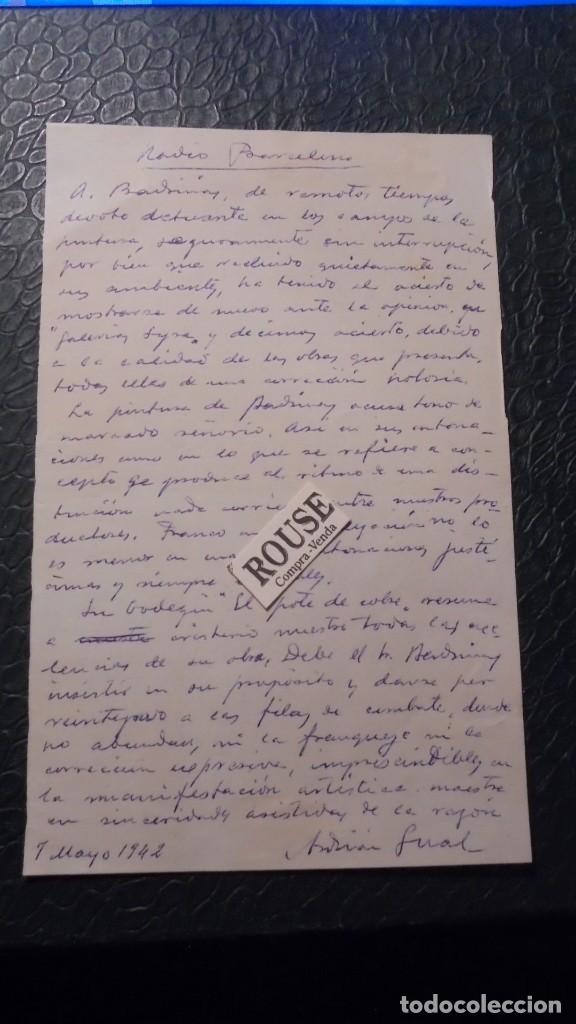 Radio Barcelona
A. Badrinas, de remotos tiempos
devoto actuante en los campos de la
pintura, seguramente sin interrupción,
por bien que recluido quietamente en
sus ambientes, ha tenido el acierto de
mostrarse de nuevo ante la opinion, en
"Galerias Syra" y decimos acierto, debido
a la calidad de las obras que presenta,
todas ellas de una corrección notoria.
La pintura de Badrinas acusa tono de
marcado señorio. Asi en sus entona-
ciones como en lo que se refiere a con-
cepto se produce al ritmo de una dis-
tinción nada entre nuestros pro-
ductores. Franco no lo
es menor en entonaciones juste-
simas y siempre
Su bodegón "El pote de cobre, resume
a criterio nuestro todas las exce-
lencias de su obra. Debe el Sr. Badrinas
insistir en su proposito y darse por
reintegrado a las filas de combate, donde
no abundan, ni la franqueza ni la
corrección expresiva, imprescindibles en
la manifestación artística maestra
en sinceridades asistidas de la razón
7 Mayo 1942 Adrián Gual
ROUSE
Compra-Venda
todocoleccion